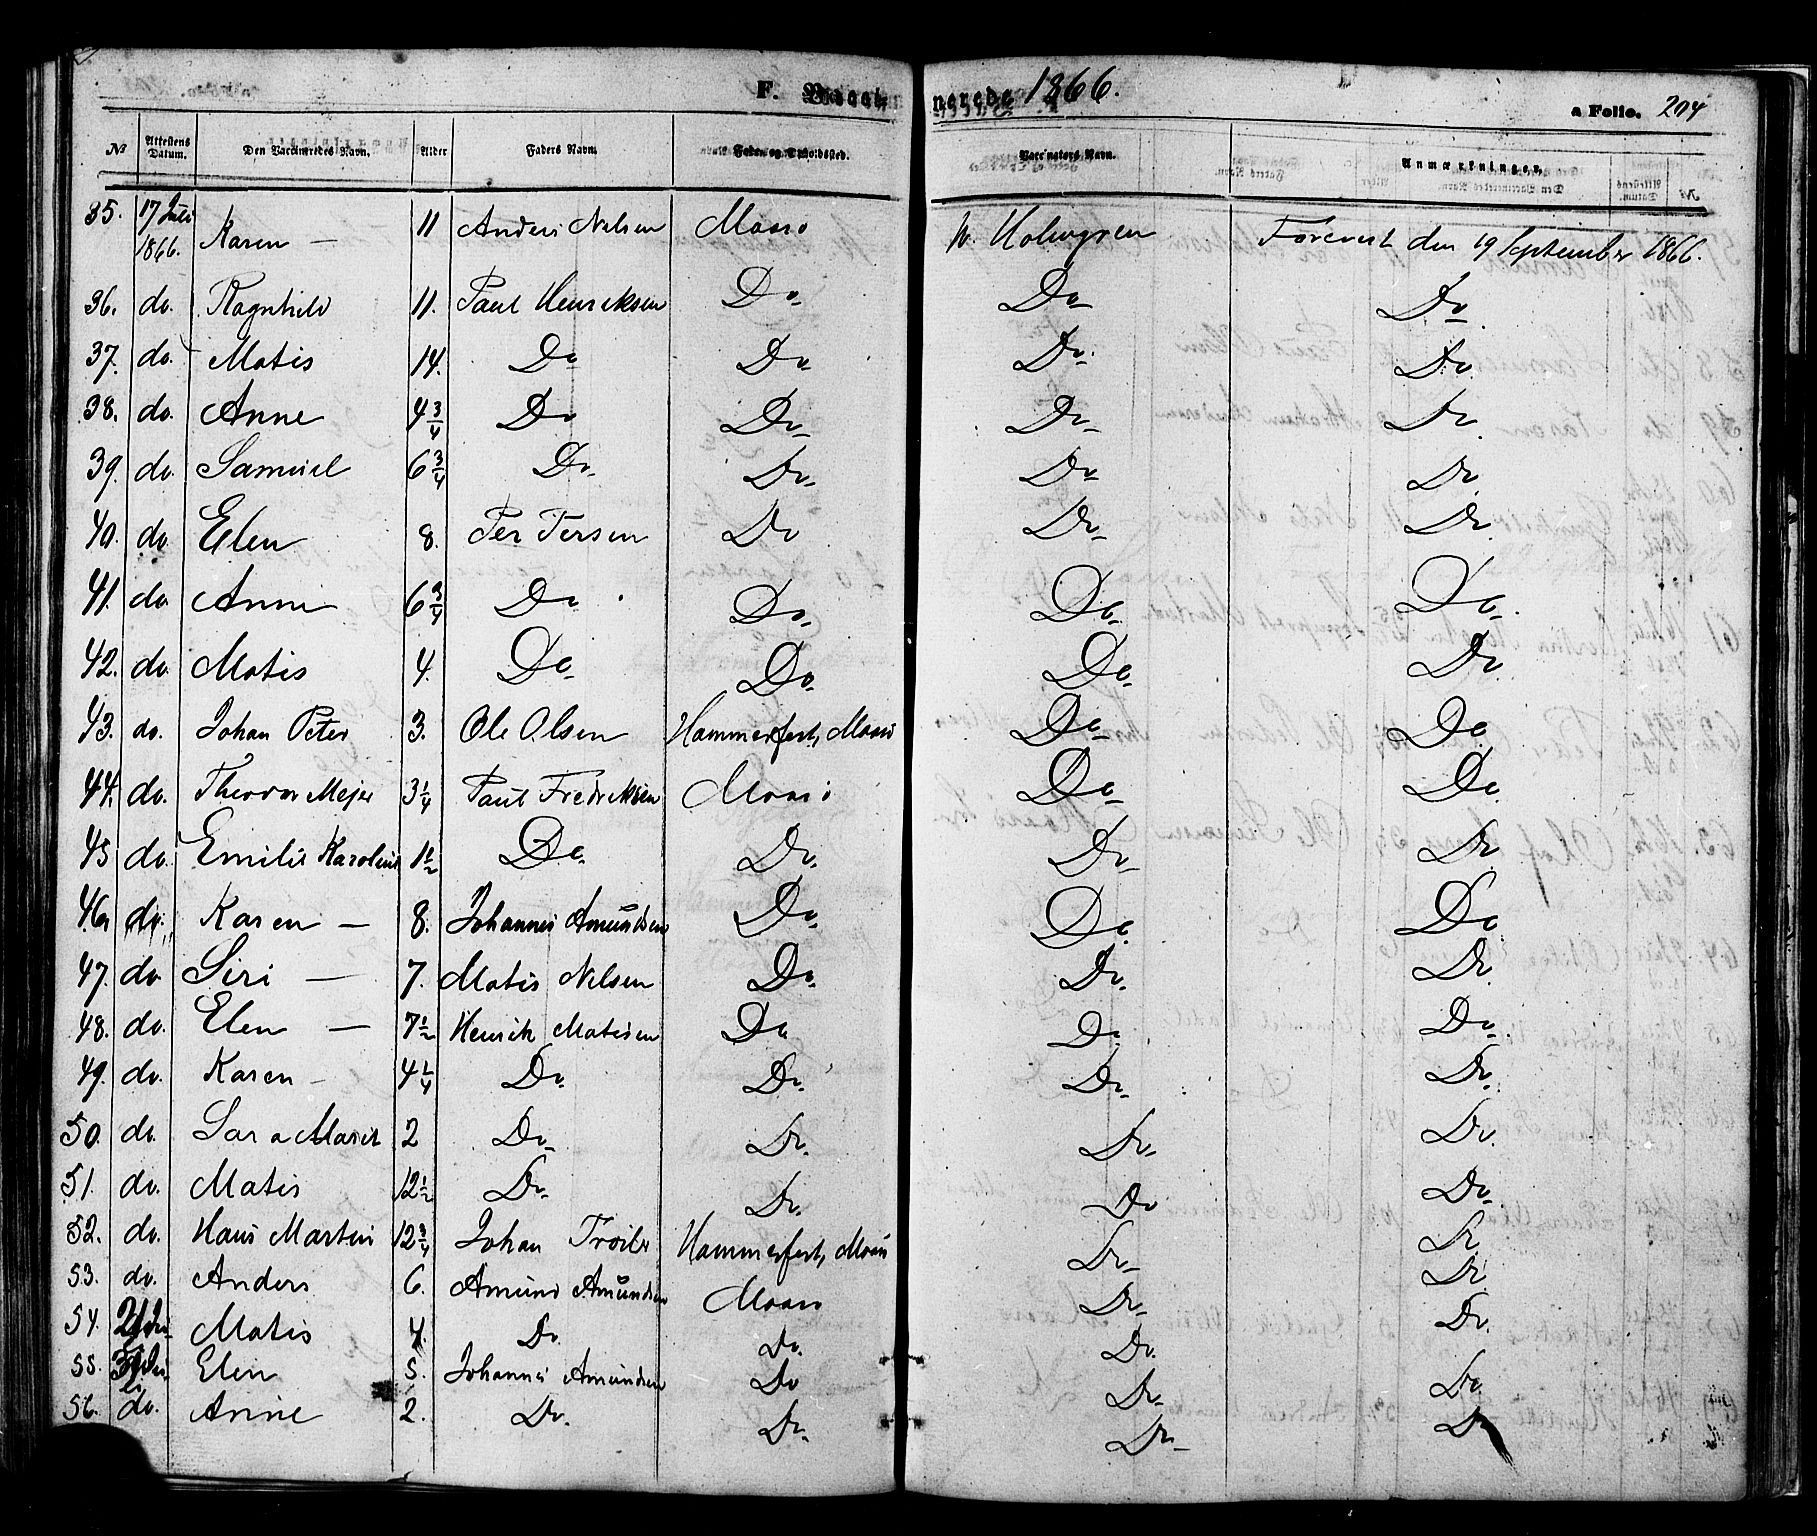 F. Vaccinerede 1866. a Folio. 204
№ Attestens Datum. Den Vaccineredes Navn. Alder Faders Navn. Føde- og Opholdssted. Vaccinators Navn. Anmærkninger.
35. 17 Juli 1866. Karen — 11 Anders Nelsen Maasø Holmgren Forevist den 19 September 1866.
36. do. Ragnhild 11. Paul Henriksen Do Do Do
37. do. Matis 14. Do Do Do Do
38. do. Anne 4 3/4 Do Do Do Do
39. do. Samuel 6 3/4 Do Do Do Do
40. do Elen 8. Per Persen Do Do Do
41. do. Anne 6 3/4 Do Do Do Do
42. do. Matis 4. Do Do Do Do
43. do. Johan Peter 3. Ole Olsen Hammerfest, Maasø Do Do
44. do. Theodor Mejer 3 1/4 Paul Fredriksen Maasø Do Do
45 do. Emilie Karoline 1 1/2 Do Do Do Do
46. do. Karen — 8. Johannes Amundsen Do Do Do
47. do Siri — 7. Matis Nilsen Do Do Do
48. do. Elen — 7 1/2 Henrik Matisen Do Do Do
49. do. Karen — 4 1/4 Do Do Do Do
50. do. Sara Marit 2 Do Do Do Do
51. do. Matis 12 1/2 Do Do Do Do
52. do. Hans Martin 12 3/4 Johan Hammerfest, Maasø Do Do
53. do. Anders 6. Amund Amundsen Maasø Do Do
54. Matis 4. Do Do Do Do
55. Elen 5. Johannes Amundsen Do Do Do
56. do. Anne 2. Do. Do Do Do